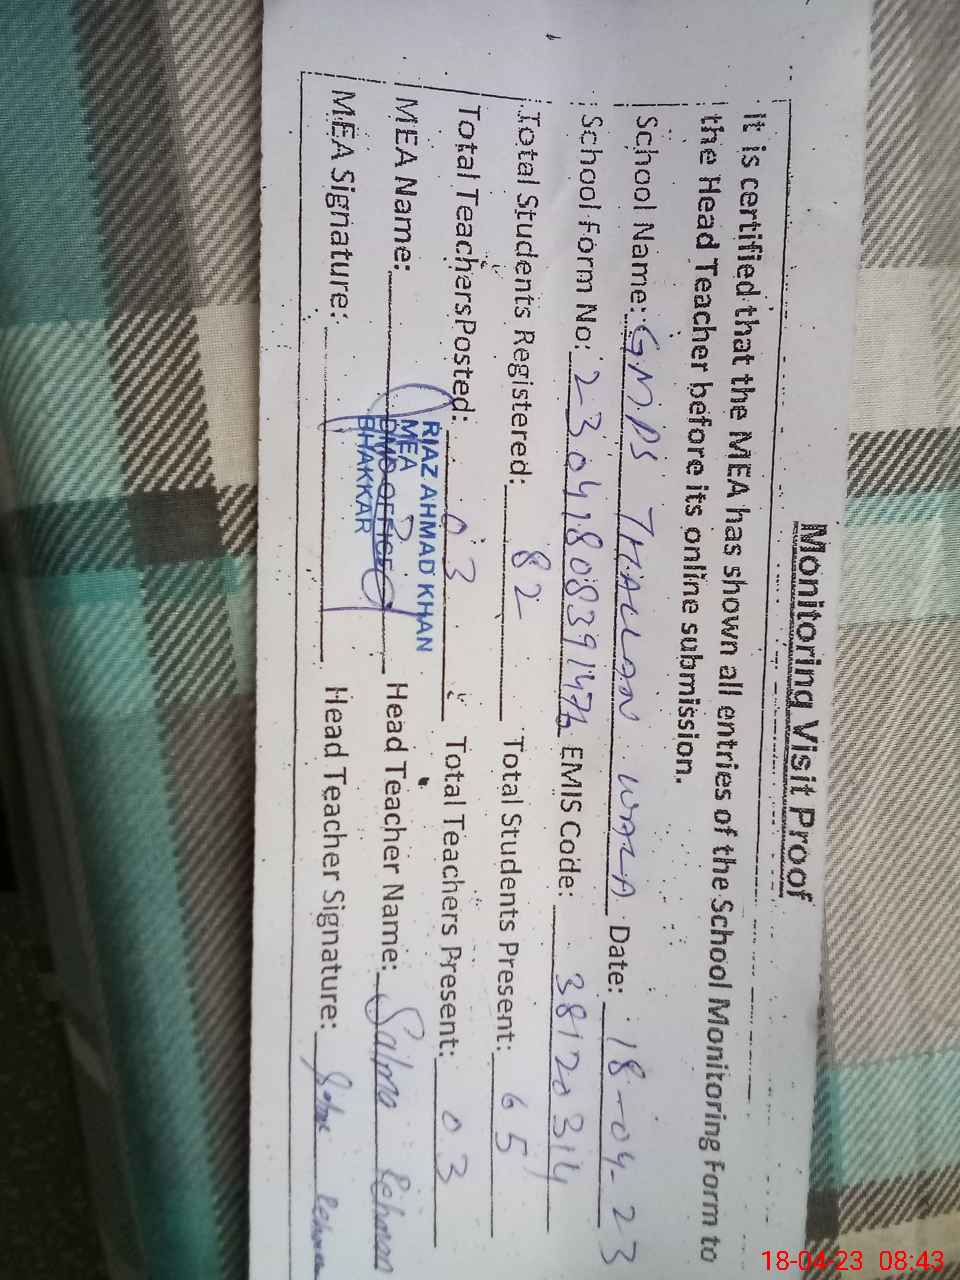 Monitoring Visit Proof
It is certified that the MEA has shown all entries of the School Monitoring Form to
the Head Teacher before its online submission.
School Name: GMPS THALLAN WALA Date: 18-04-23
School Form No: EMIS Code: 38120314
Total Students Registered: 82 Total Students Present: 65
Total Teachers Posted: 03 Total Teachers Present: 03
MEA Name: Head Teacher Name: Salma Rehman
RIAZ AHMAD KHAN
MEA
DMO OFFICE
BHAKKAR
MEA Signature: Head Teacher Signature: Salma Rehman
18-04-23 08:43